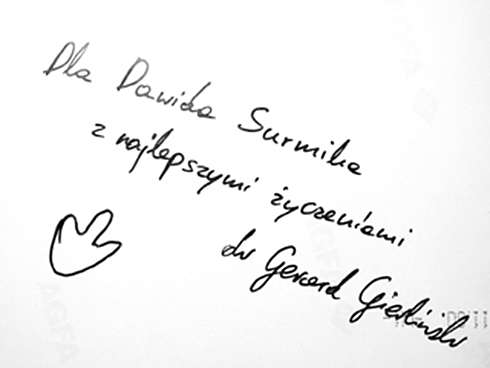 Dla Dawida Surmika
z najlepszymi życzeniami
dr Gerard Gierliński
AGFA
AGFA
AGFA